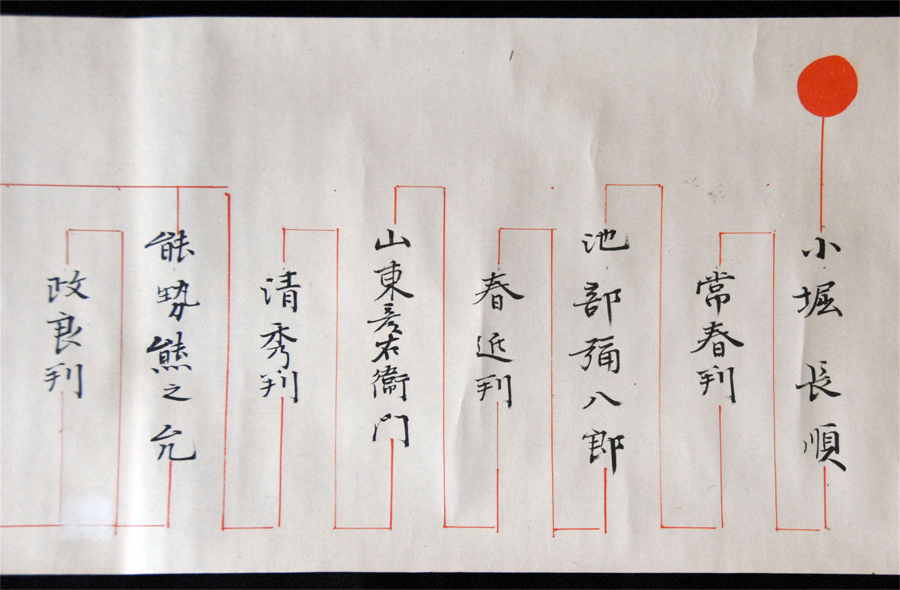 小堀長順
常春判
池部彌八郎
春近判
山東彦右衞門
清秀判
能㔟熊之允
政良判